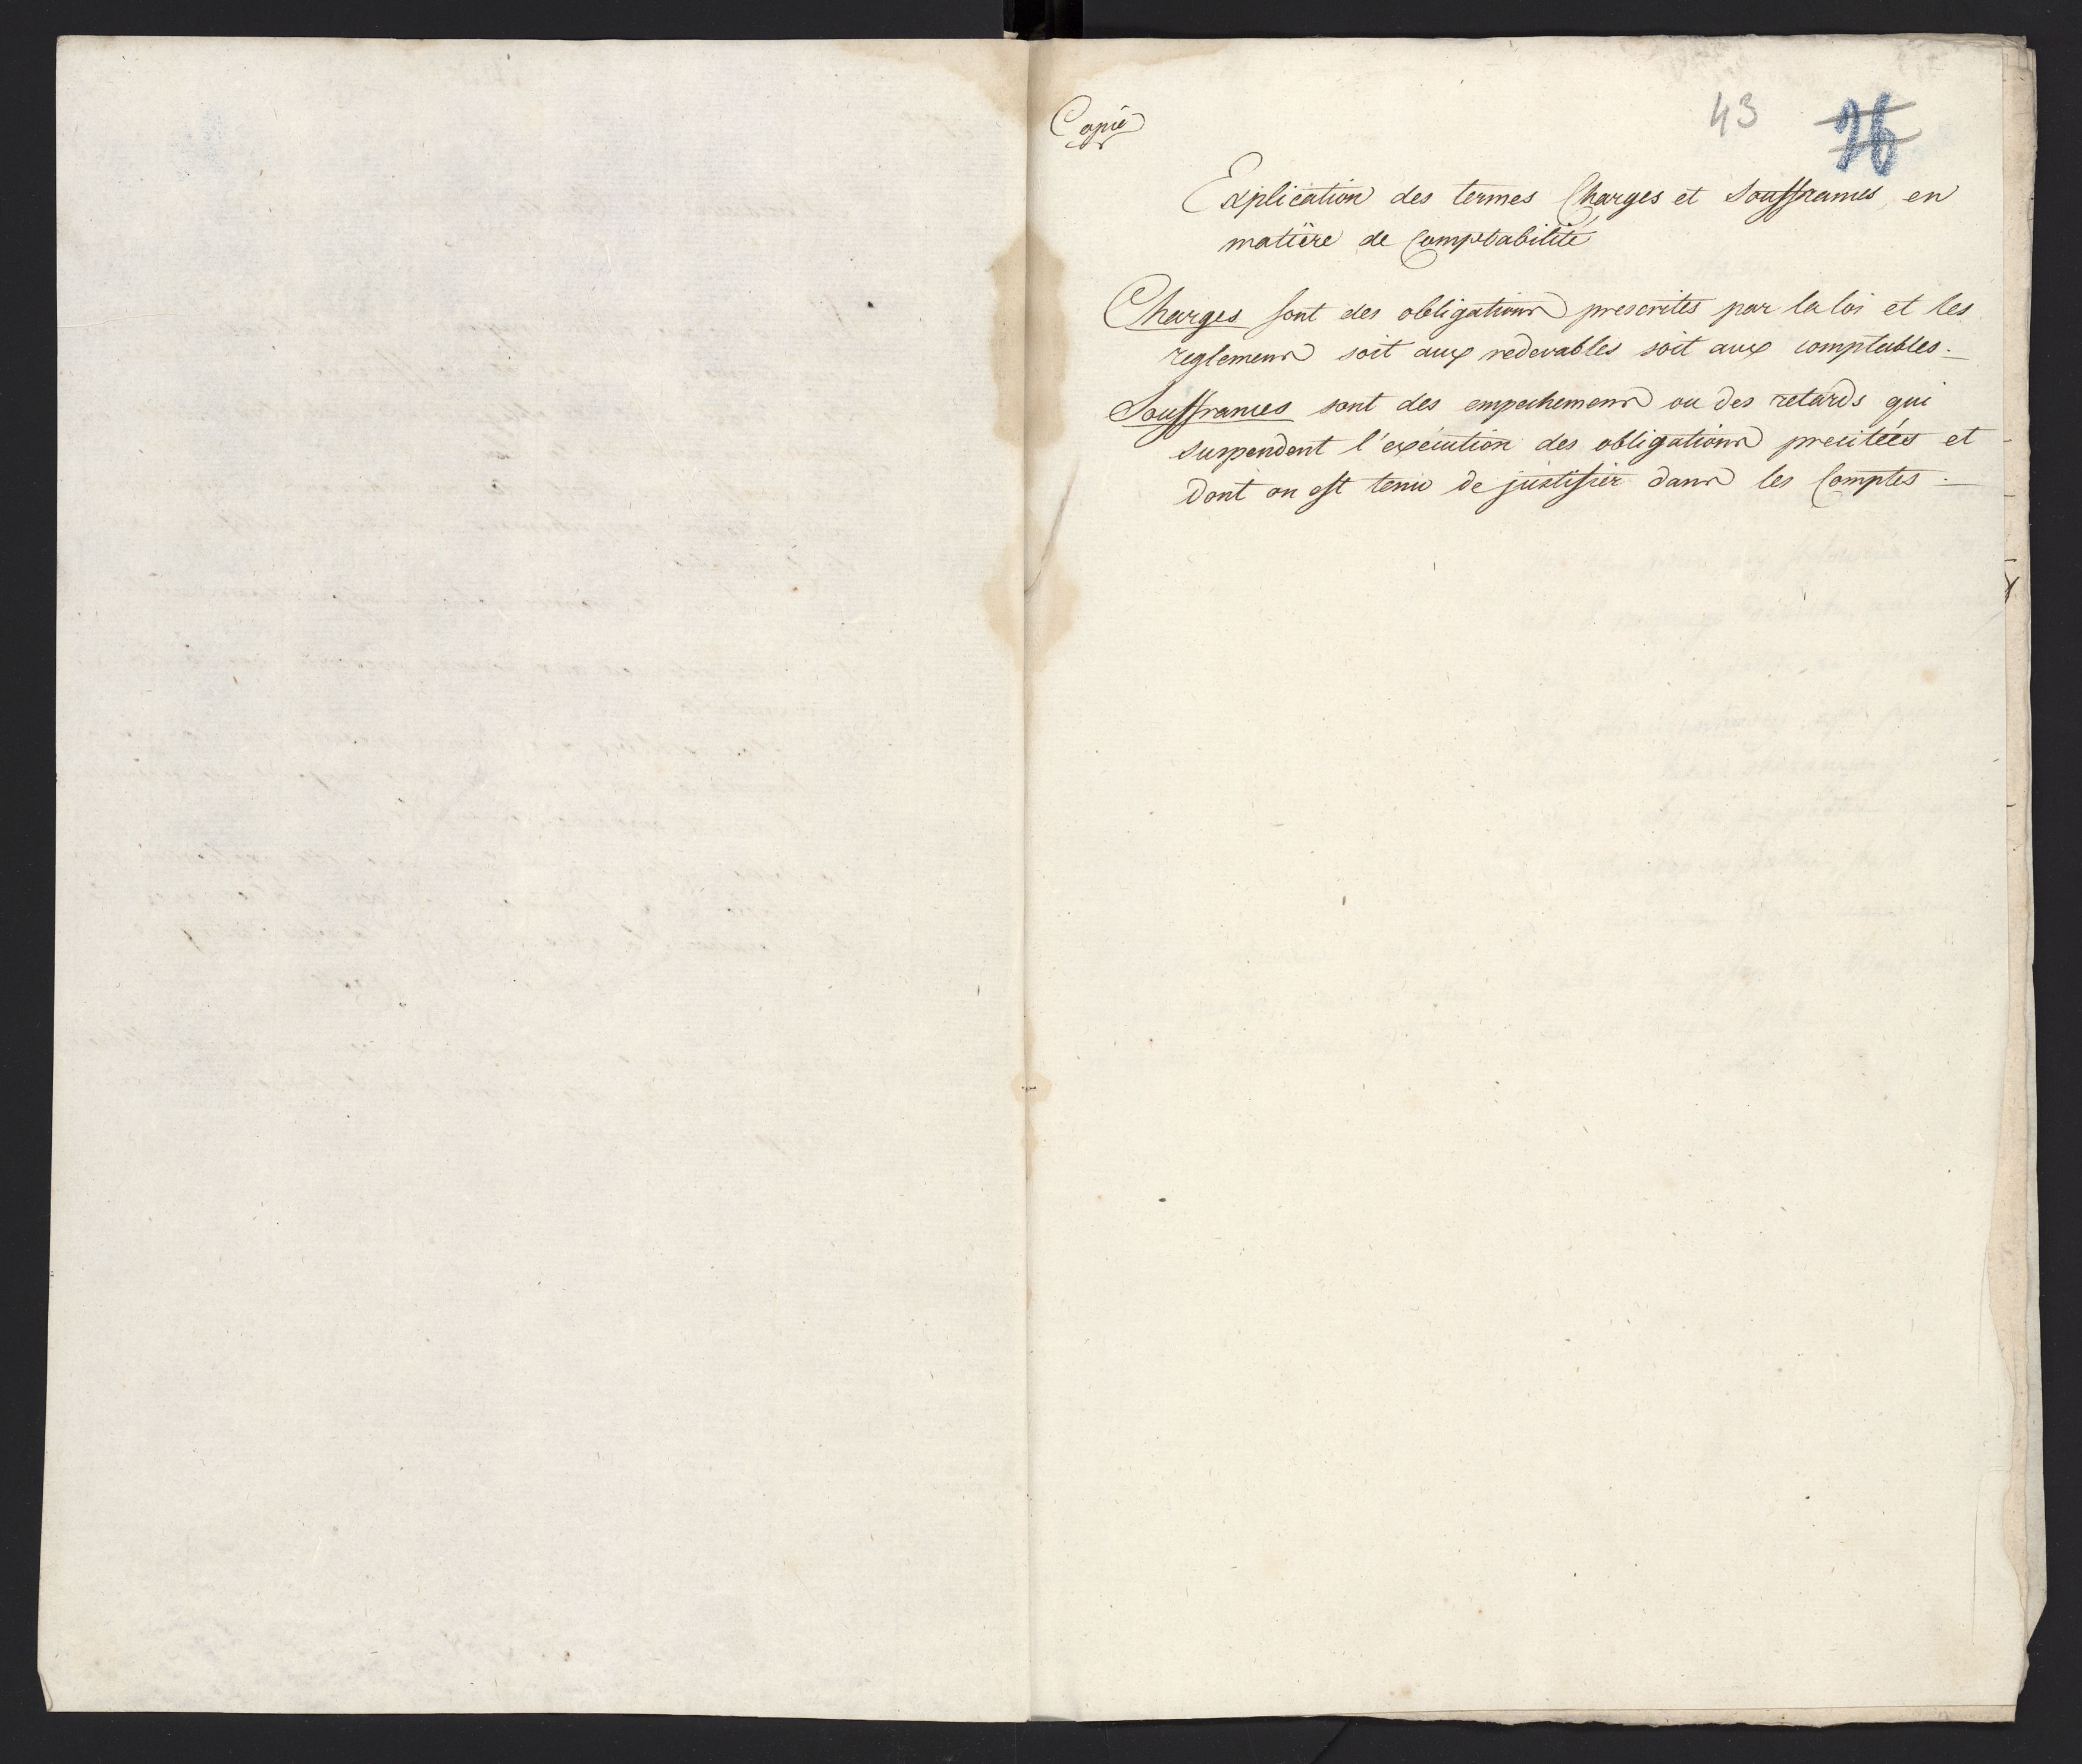 Copie
43
36
Explication des termes Charges et Souffrances, en
matière de Comptabilité
Charges sont des obligations prescrites par la loi et les
reglemens soit aux redevables soit aux comptables.
Souffrances sont des empechemens ou des retards qui
suspendent l'execution des obligations precitées et
dont on est tenu de justifier dans les Comptes.